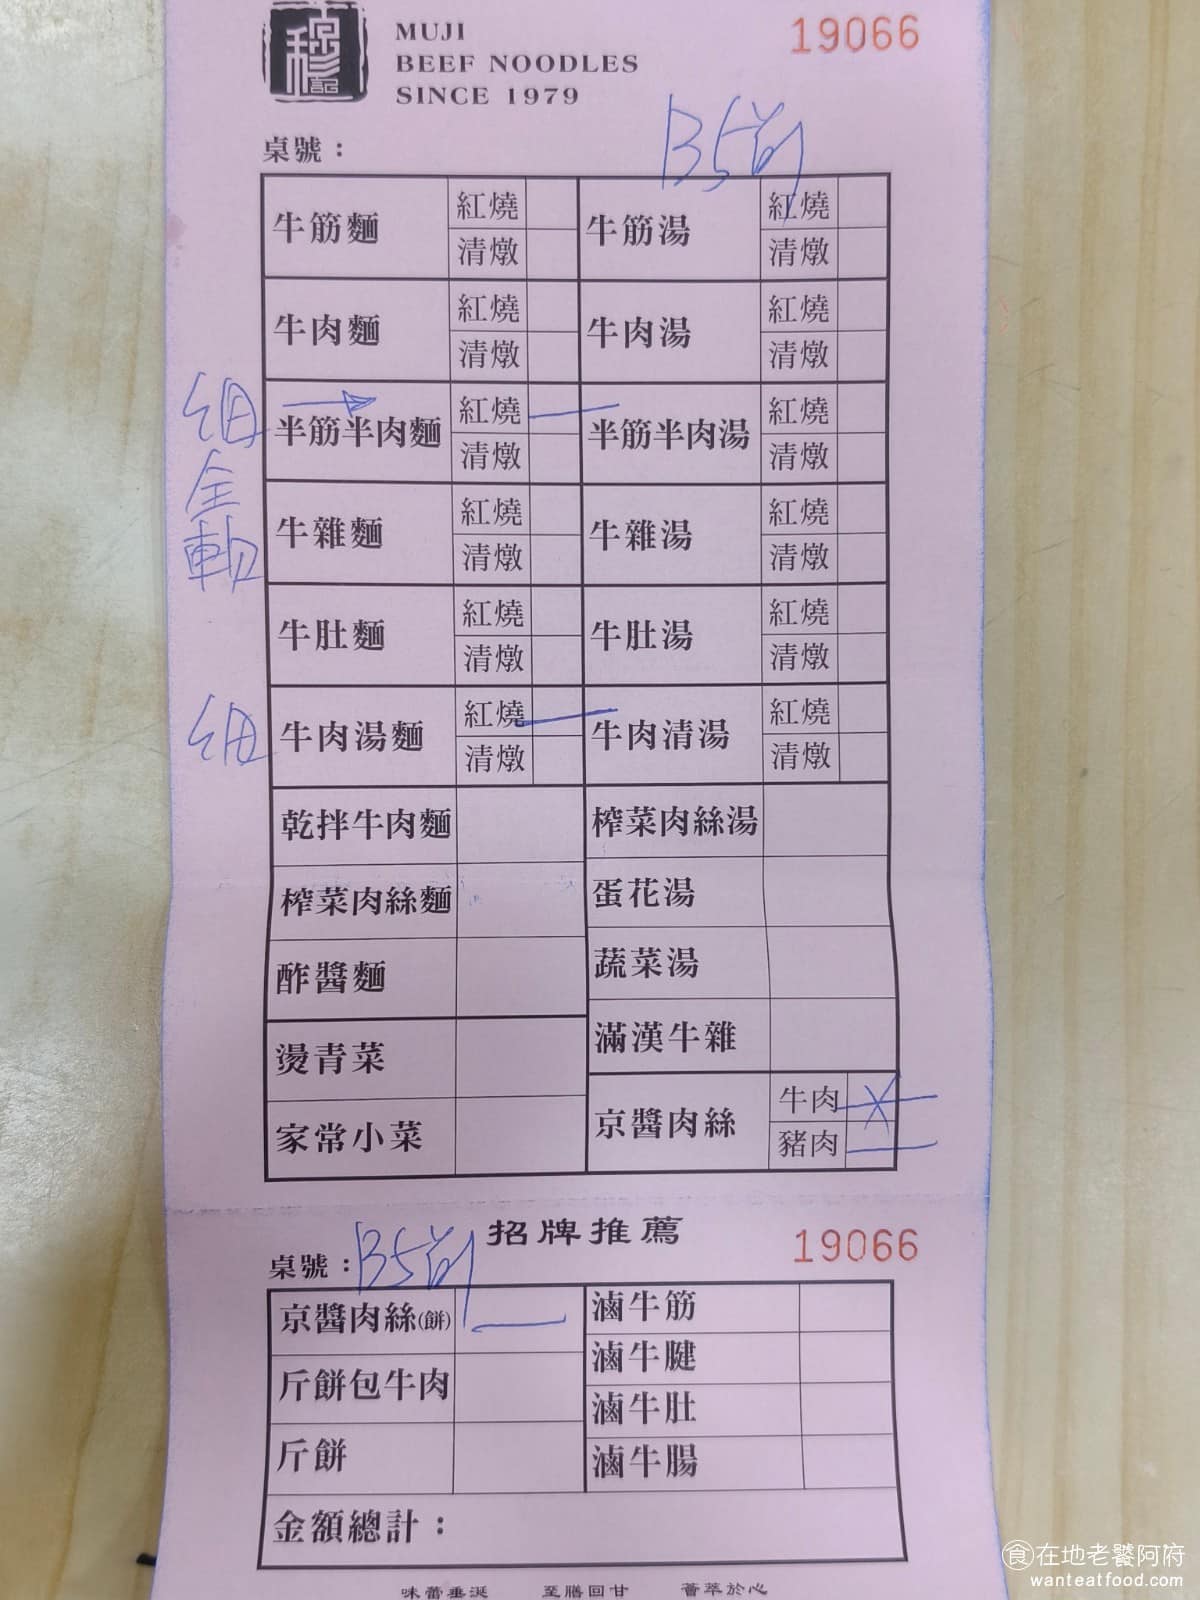 穆記
MUJI
BEEF NOODLES
SINCE 1979
19066
桌號：
B5前
牛筋麵 紅燒 清燉 牛筋湯 紅燒 清燉
牛肉麵 紅燒 清燉 牛肉湯 紅燒 清燉
細 半筋半肉麵 紅燒 清燉 半筋半肉湯 紅燒 清燉
全
軟
牛雜麵 紅燒 清燉 牛雜湯 紅燒 清燉
牛肚麵 紅燒 清燉 牛肚湯 紅燒 清燉
細 牛肉湯麵 紅燒 清燉 牛肉清湯 紅燒 清燉
乾拌牛肉麵 榨菜肉絲湯
榨菜肉絲麵 蛋花湯
酢醬麵 蔬菜湯
燙青菜 滿漢牛雜
家常小菜 京醬肉絲 牛肉 豬肉
招牌推薦
19066
桌號：B5前
京醬肉絲(餅) 滷牛筋
斤餅包牛肉 滷牛腱
滷牛肚
斤餅 滷牛腸
金額總計：
味蕾垂涎 至膳回甘 薈萃於心
食 在地老饕阿府
wanteatfood.com